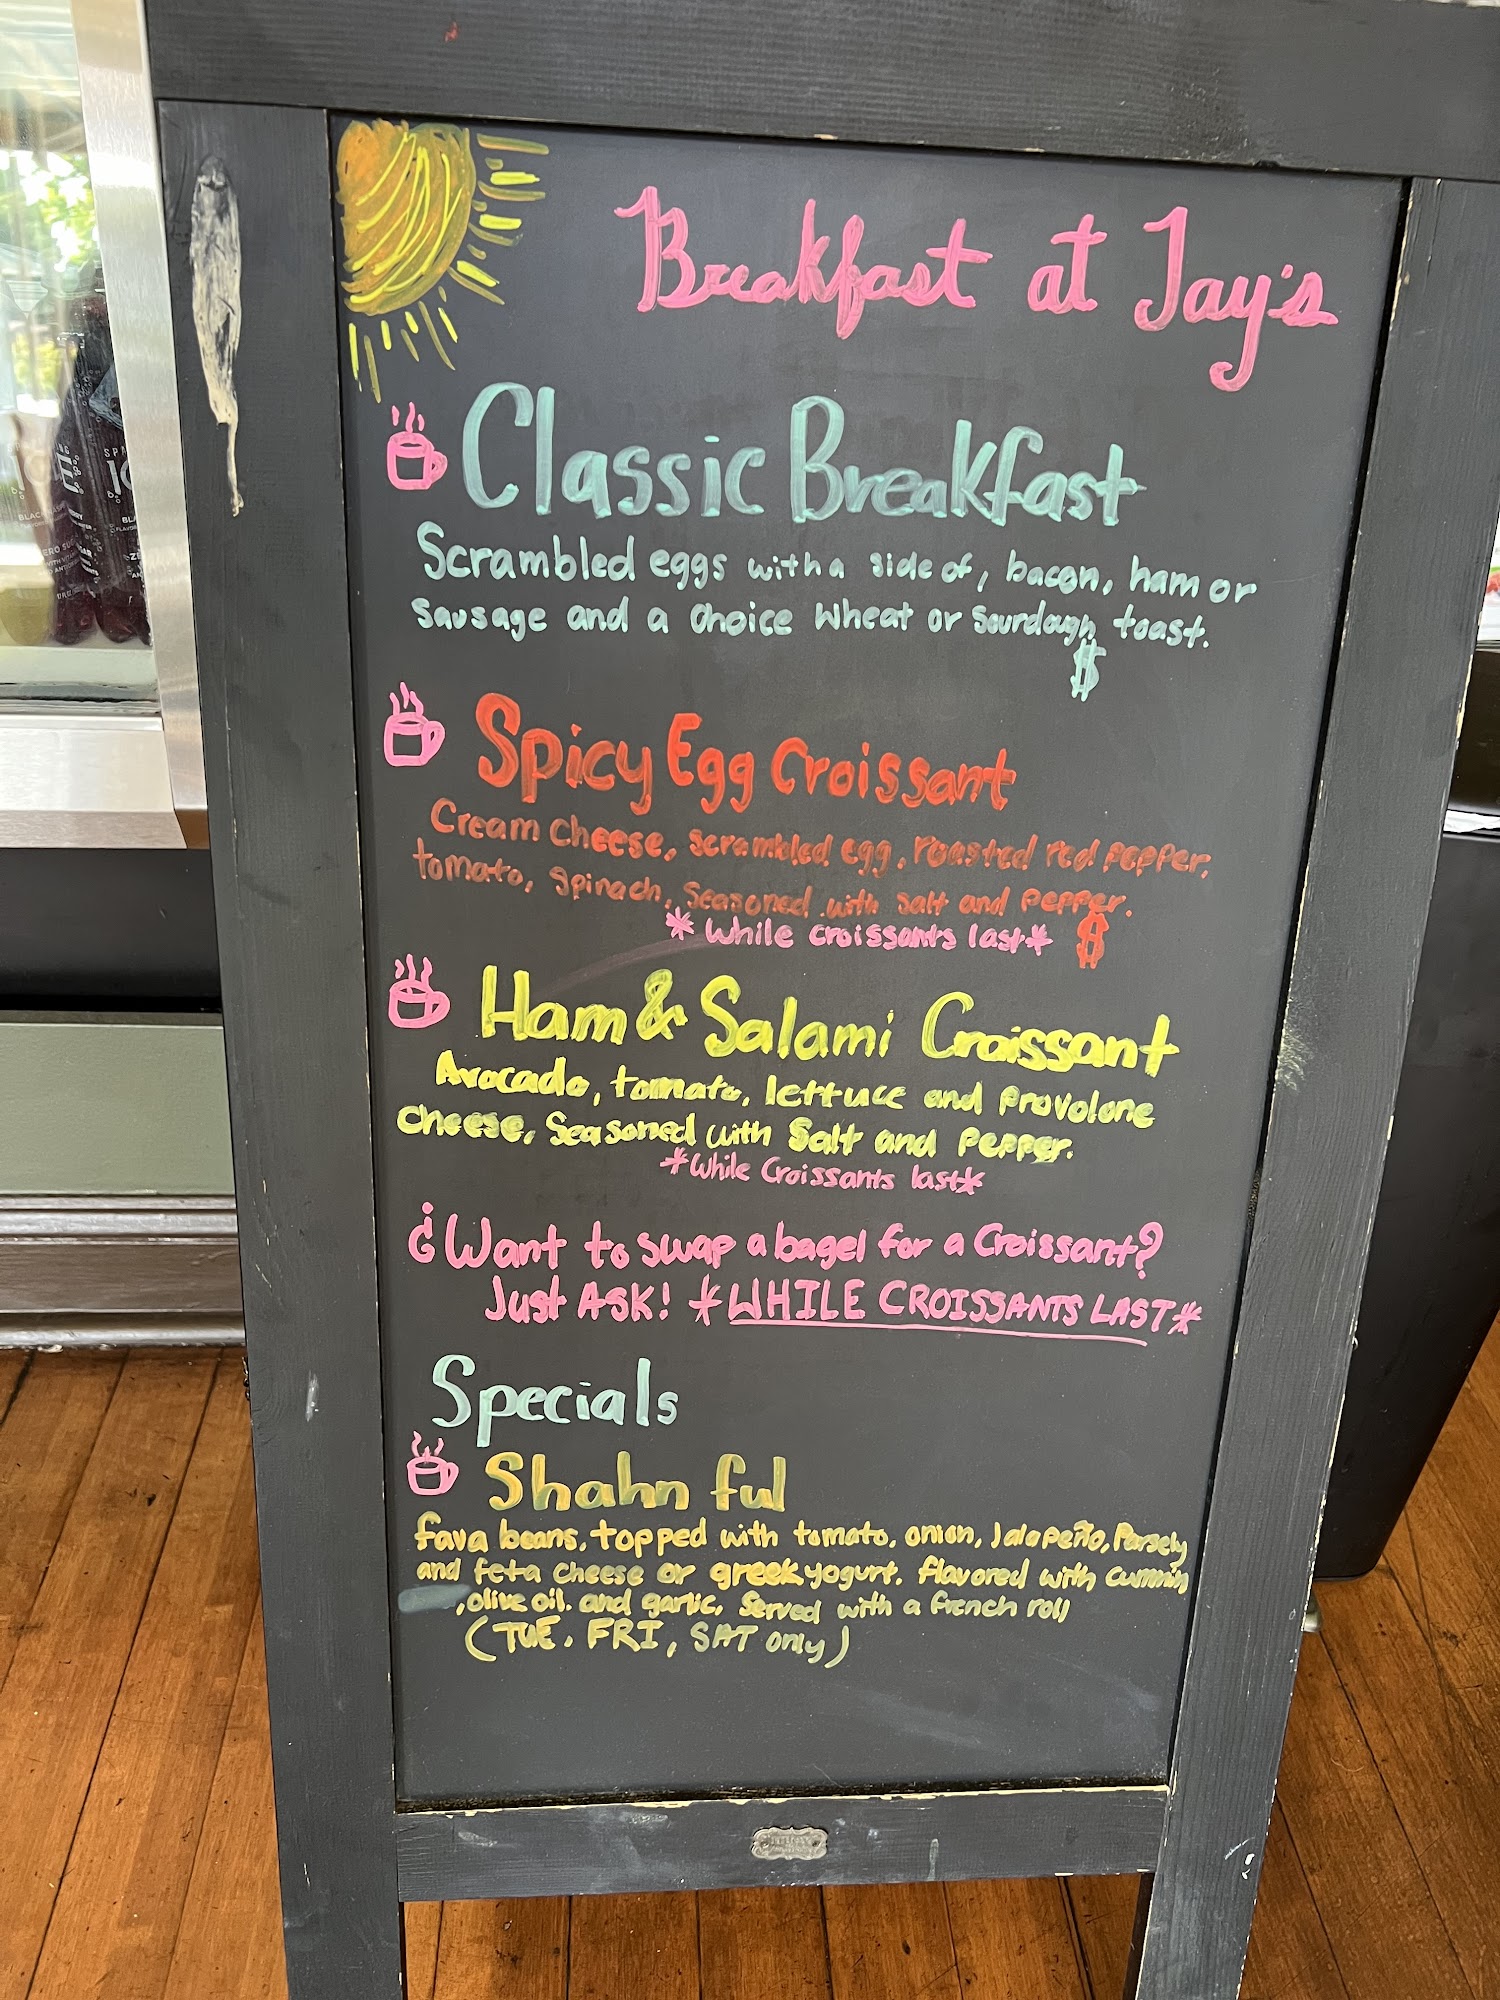 Breakfast at Jay's
Classic Breakfast
Scrambled eggs with a side of, bacon, ham or
sausage and a choice wheat or sourdough toast.
$
Spicy Egg Croissant
Cream cheese, scrambled egg, roasted red pepper,
tomato, spinach, seasoned with salt and pepper.
*While croissants last* $
Ham & Salami Croissant
Avocado, tomato, lettuce and provolone
cheese, seasoned with salt and pepper.
*While Croissants last*
¿Want to swap a bagel for a Croissant?
Just ASK! *WHILE CROISSANTS LAST*
Specials
Shahn ful
fava beans, topped with tomato, onion, Jalapeño, Parsely
and feta cheese or greek yogurt. flavored with cummin
, olive oil. and garlic, Served with a french roll
(TUE, FRI, SAT only)